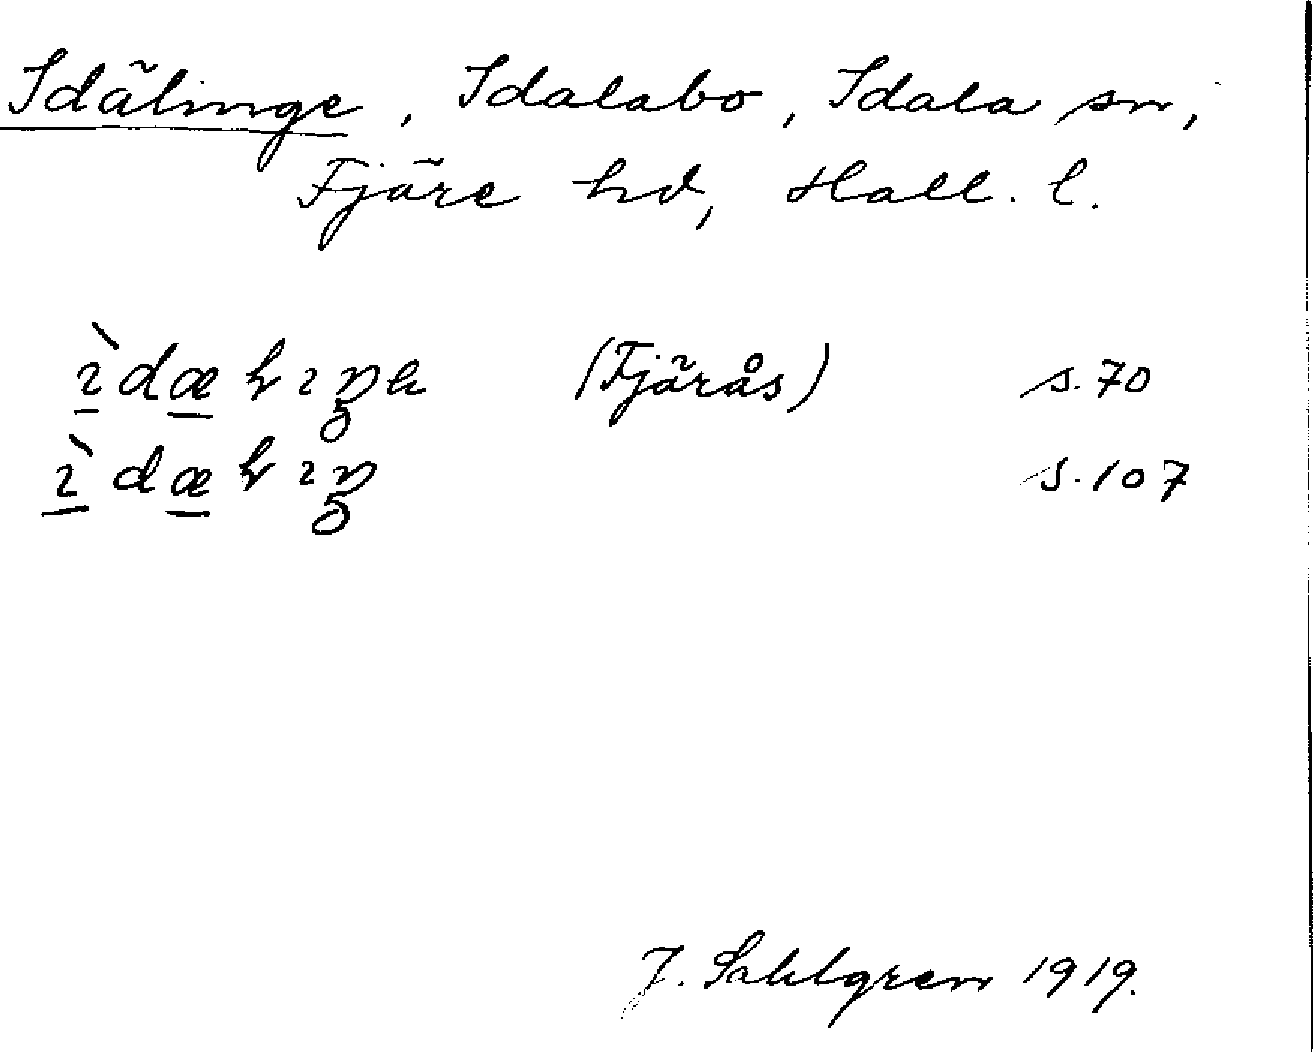 Idälinge, Idalabo, Idala sn,
Fjäre hd, Hall. l.
(Fjärås) s. 70
s. 107
J. Sahlgren 1919.